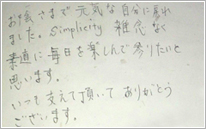 お陰さまで元気な自分に戻れ
ました。Simplicity 雑念なく
素直に毎日を楽しんで参りたいと
思います。
いつも支えて頂いて ありがとう
ございます。